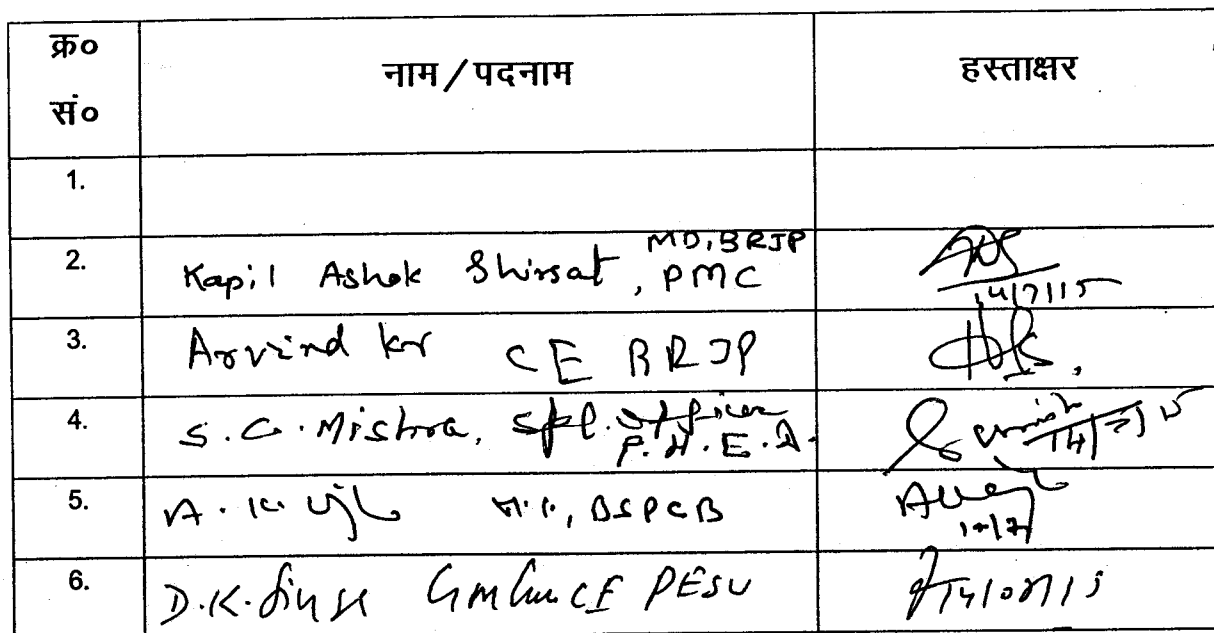 क्र० सं० नाम / पदनाम हस्ताक्षर
1.
2. Kapil Ashok Shirsat, MD, BRJP PMC 14/7/15
3. Arvind kr CE BRJP
4. S. C. Mishra, Spl. Officer P.H.E.D. 14/7/15
5. A. K. BSPCB
6. D.K. Singh PESU